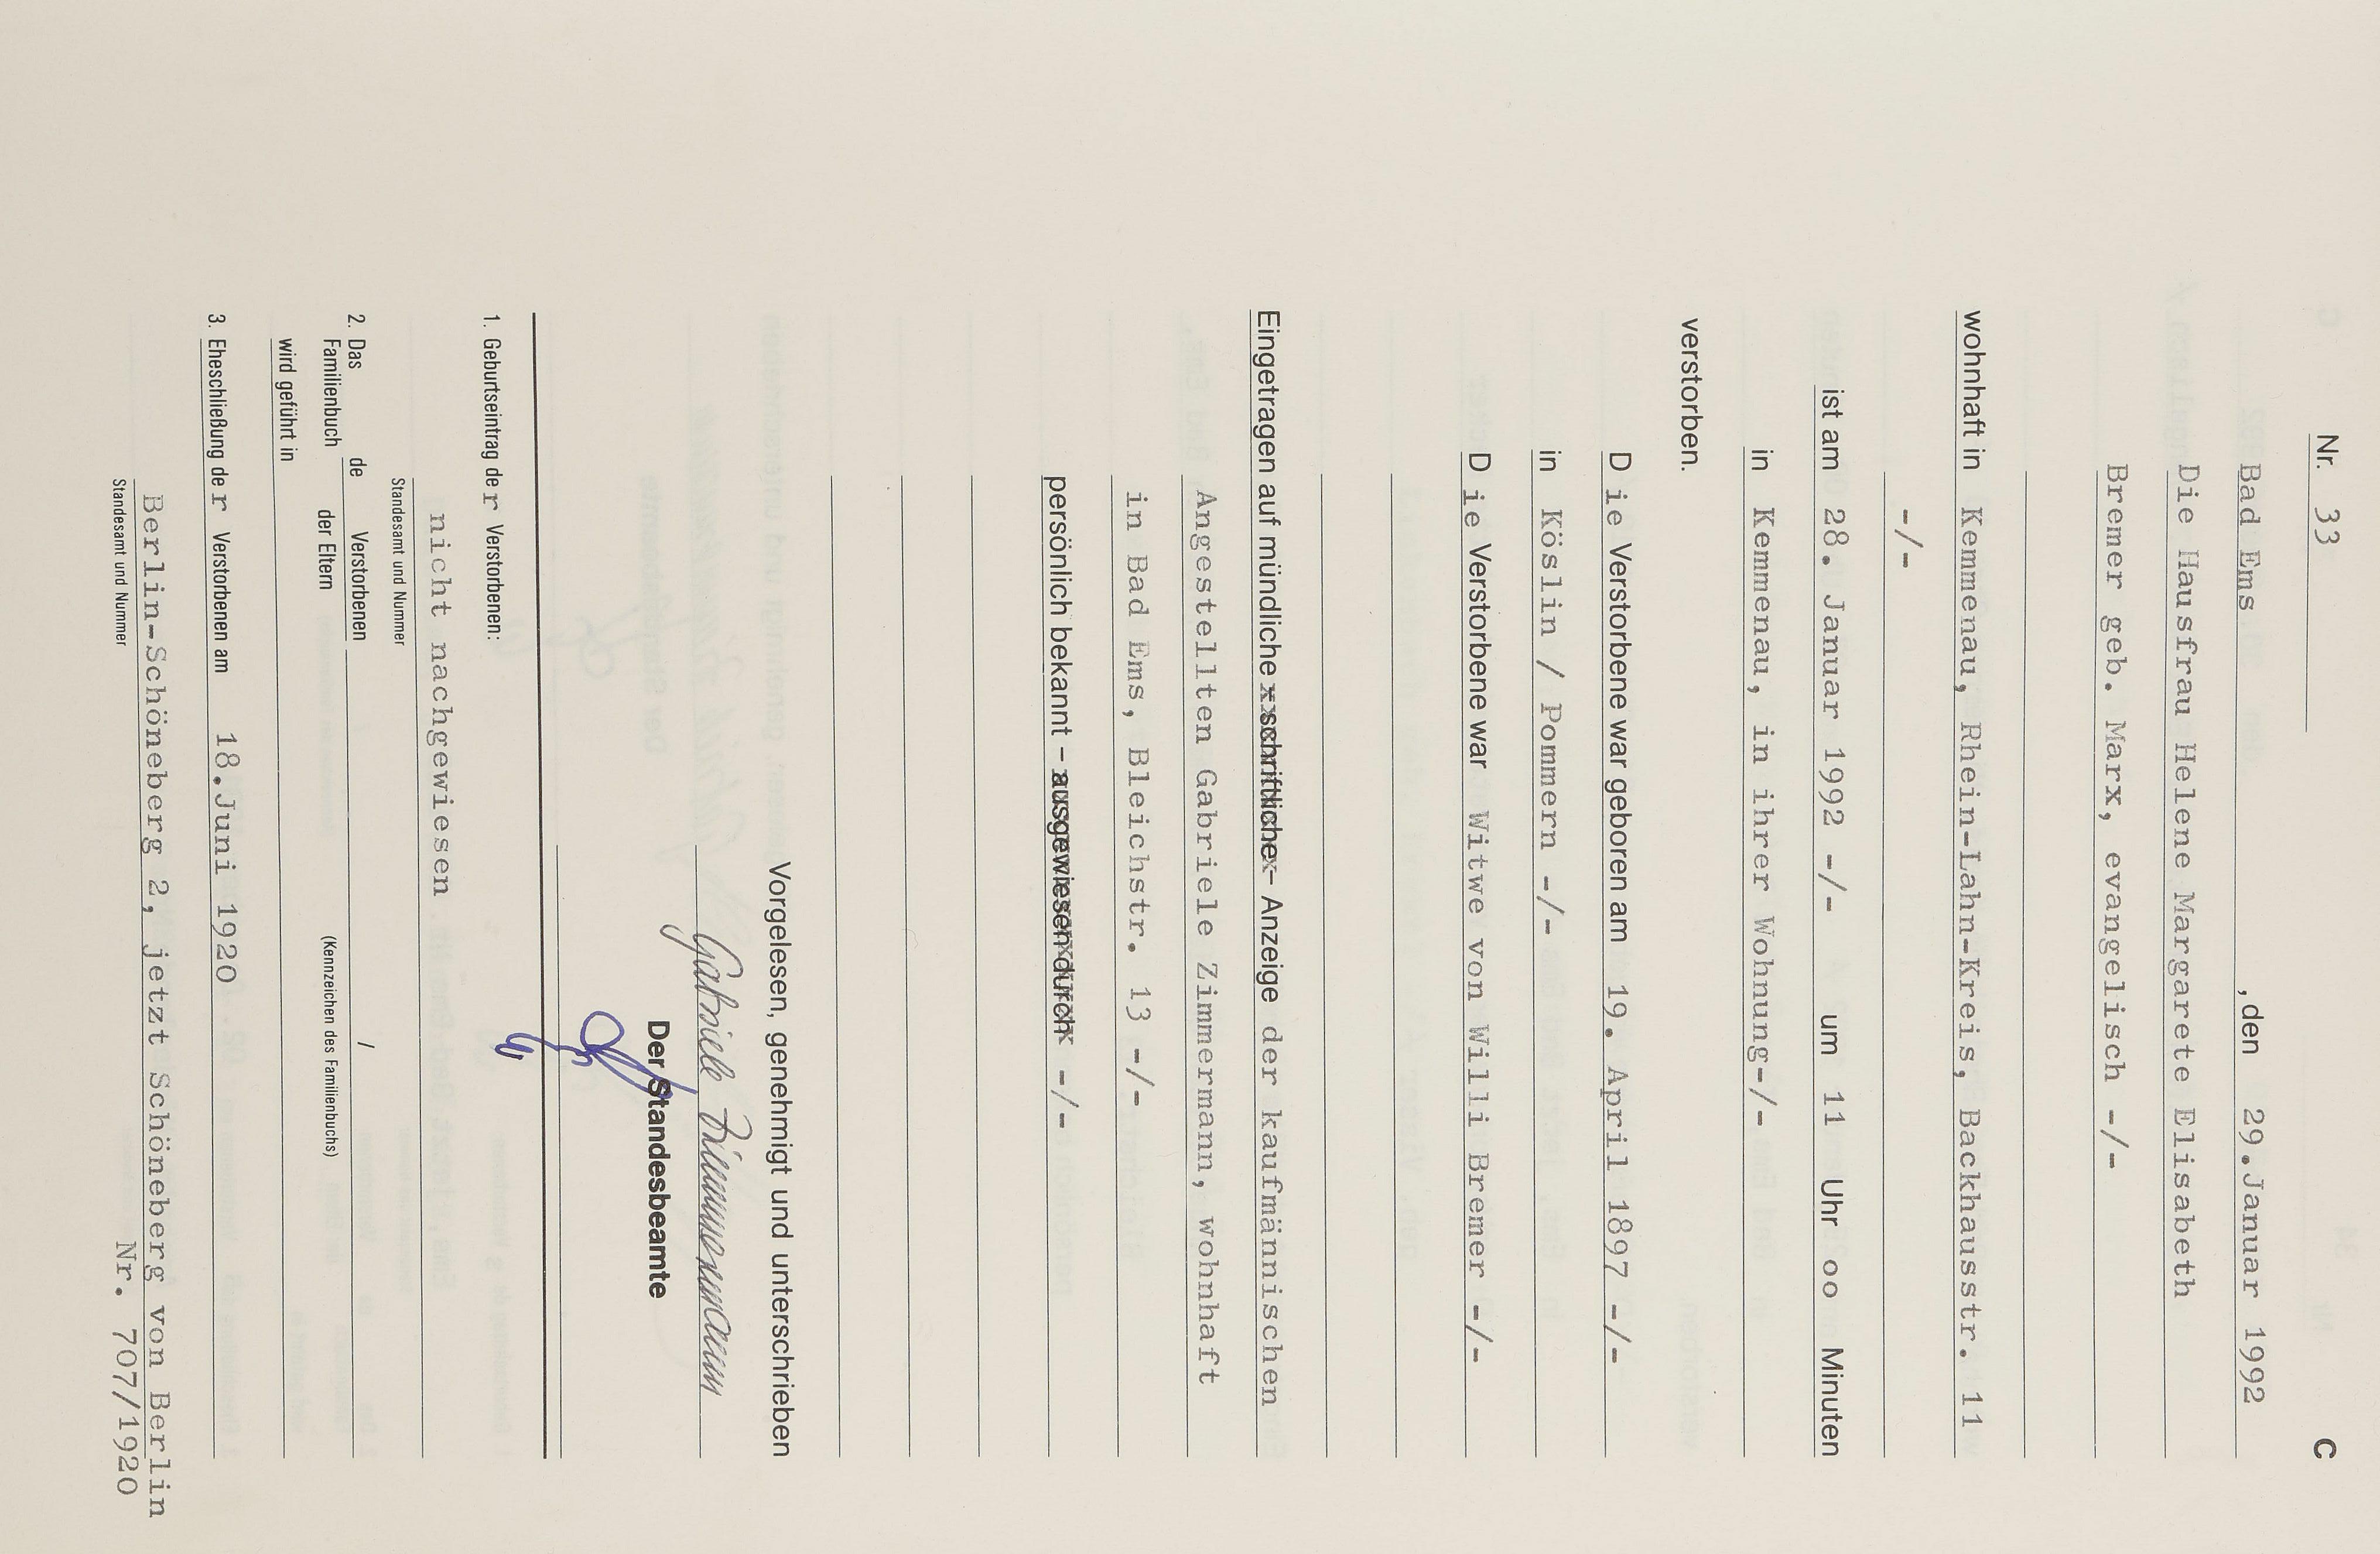 Nr. 33 C
Bad Ems ,den 29.Januar 1992
Die Hausfrau Helene Margarete Elisabeth
Bremer geb. Marx, evangelisch -/-
wohnhaft in Kemmenau, Rhein-Lahn-Kreis, Backhausstr. 11
-/-
ist am 28. Januar 1992 -/- um 11 Uhr oo Minuten
in Kemmenau, in ihrer Wohnung-/-
verstorben.
Die Verstorbene war geboren am 19. April 1897 -/-
in Köslin / Pommern -/-
Die Verstorbene war Witwe von Willi Bremer -/-
Eingetragen auf mündliche xxschriftlichex- Anzeige der kaufmännischen
Angestellten Gabriele Zimmermann, wohnhaft
in Bad Ems, Bleichstr. 13 -/-
persönlich bekannt - ausgewiesen durch -/-
Vorgelesen, genehmigt und unterschrieben
Gabriele Zimmermann
Der Standesbeamte
1. Geburtseintrag der Verstorbenen:
nicht nachgewiesen
Standesamt und Nummer
2. Das de Verstorbenen /
Familienbuch der Eltern (Kennzeichen des Familienbuchs)
wird geführt in
3. Eheschließung der Verstorbenen am 18.Juni 1920
Berlin-Schöneberg 2, jetzt Schöneberg von Berlin
Standesamt und Nummer Nr. 707/1920